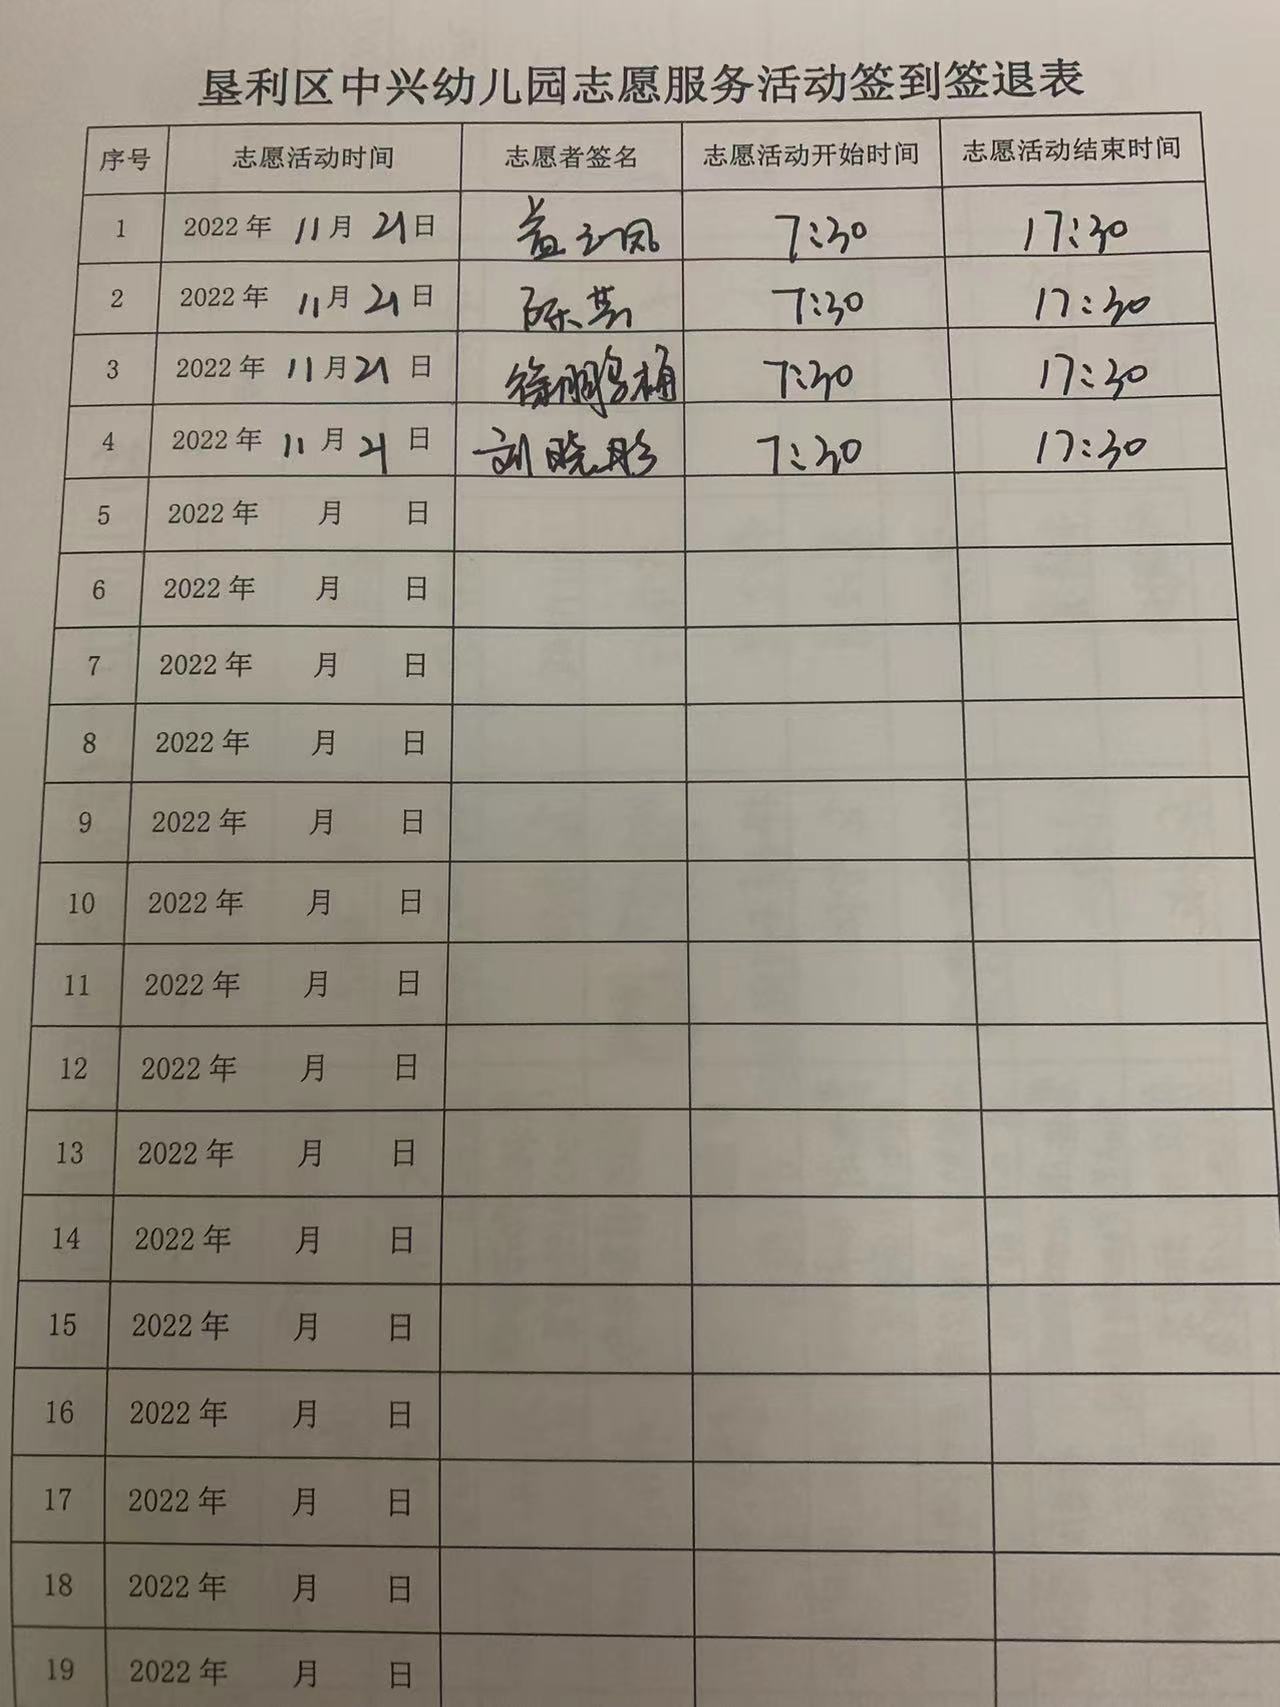 垦利区中兴幼儿园志愿服务活动签到签退表
序号 志愿活动时间 志愿者签名 志愿活动开始时间 志愿活动结束时间
1 2022年 11月 21日 7:30 17:30
2 2022年 11月 21日 7:30 17:30
3 2022年 11月 21日 7:30 17:30
4 2022年 11月 21日 刘晓彤 7:30 17:30
5 2022年 月 日
6 2022年 月 日
7 2022年 月 日
8 2022年 月 日
9 2022年 月 日
10 2022年 月 日
11 2022年 月 日
12 2022年 月 日
13 2022年 月 日
14 2022年 月 日
15 2022年 月 日
16 2022年 月 日
17 2022年 月 日
18 2022年 月 日
19 2022年 月 日